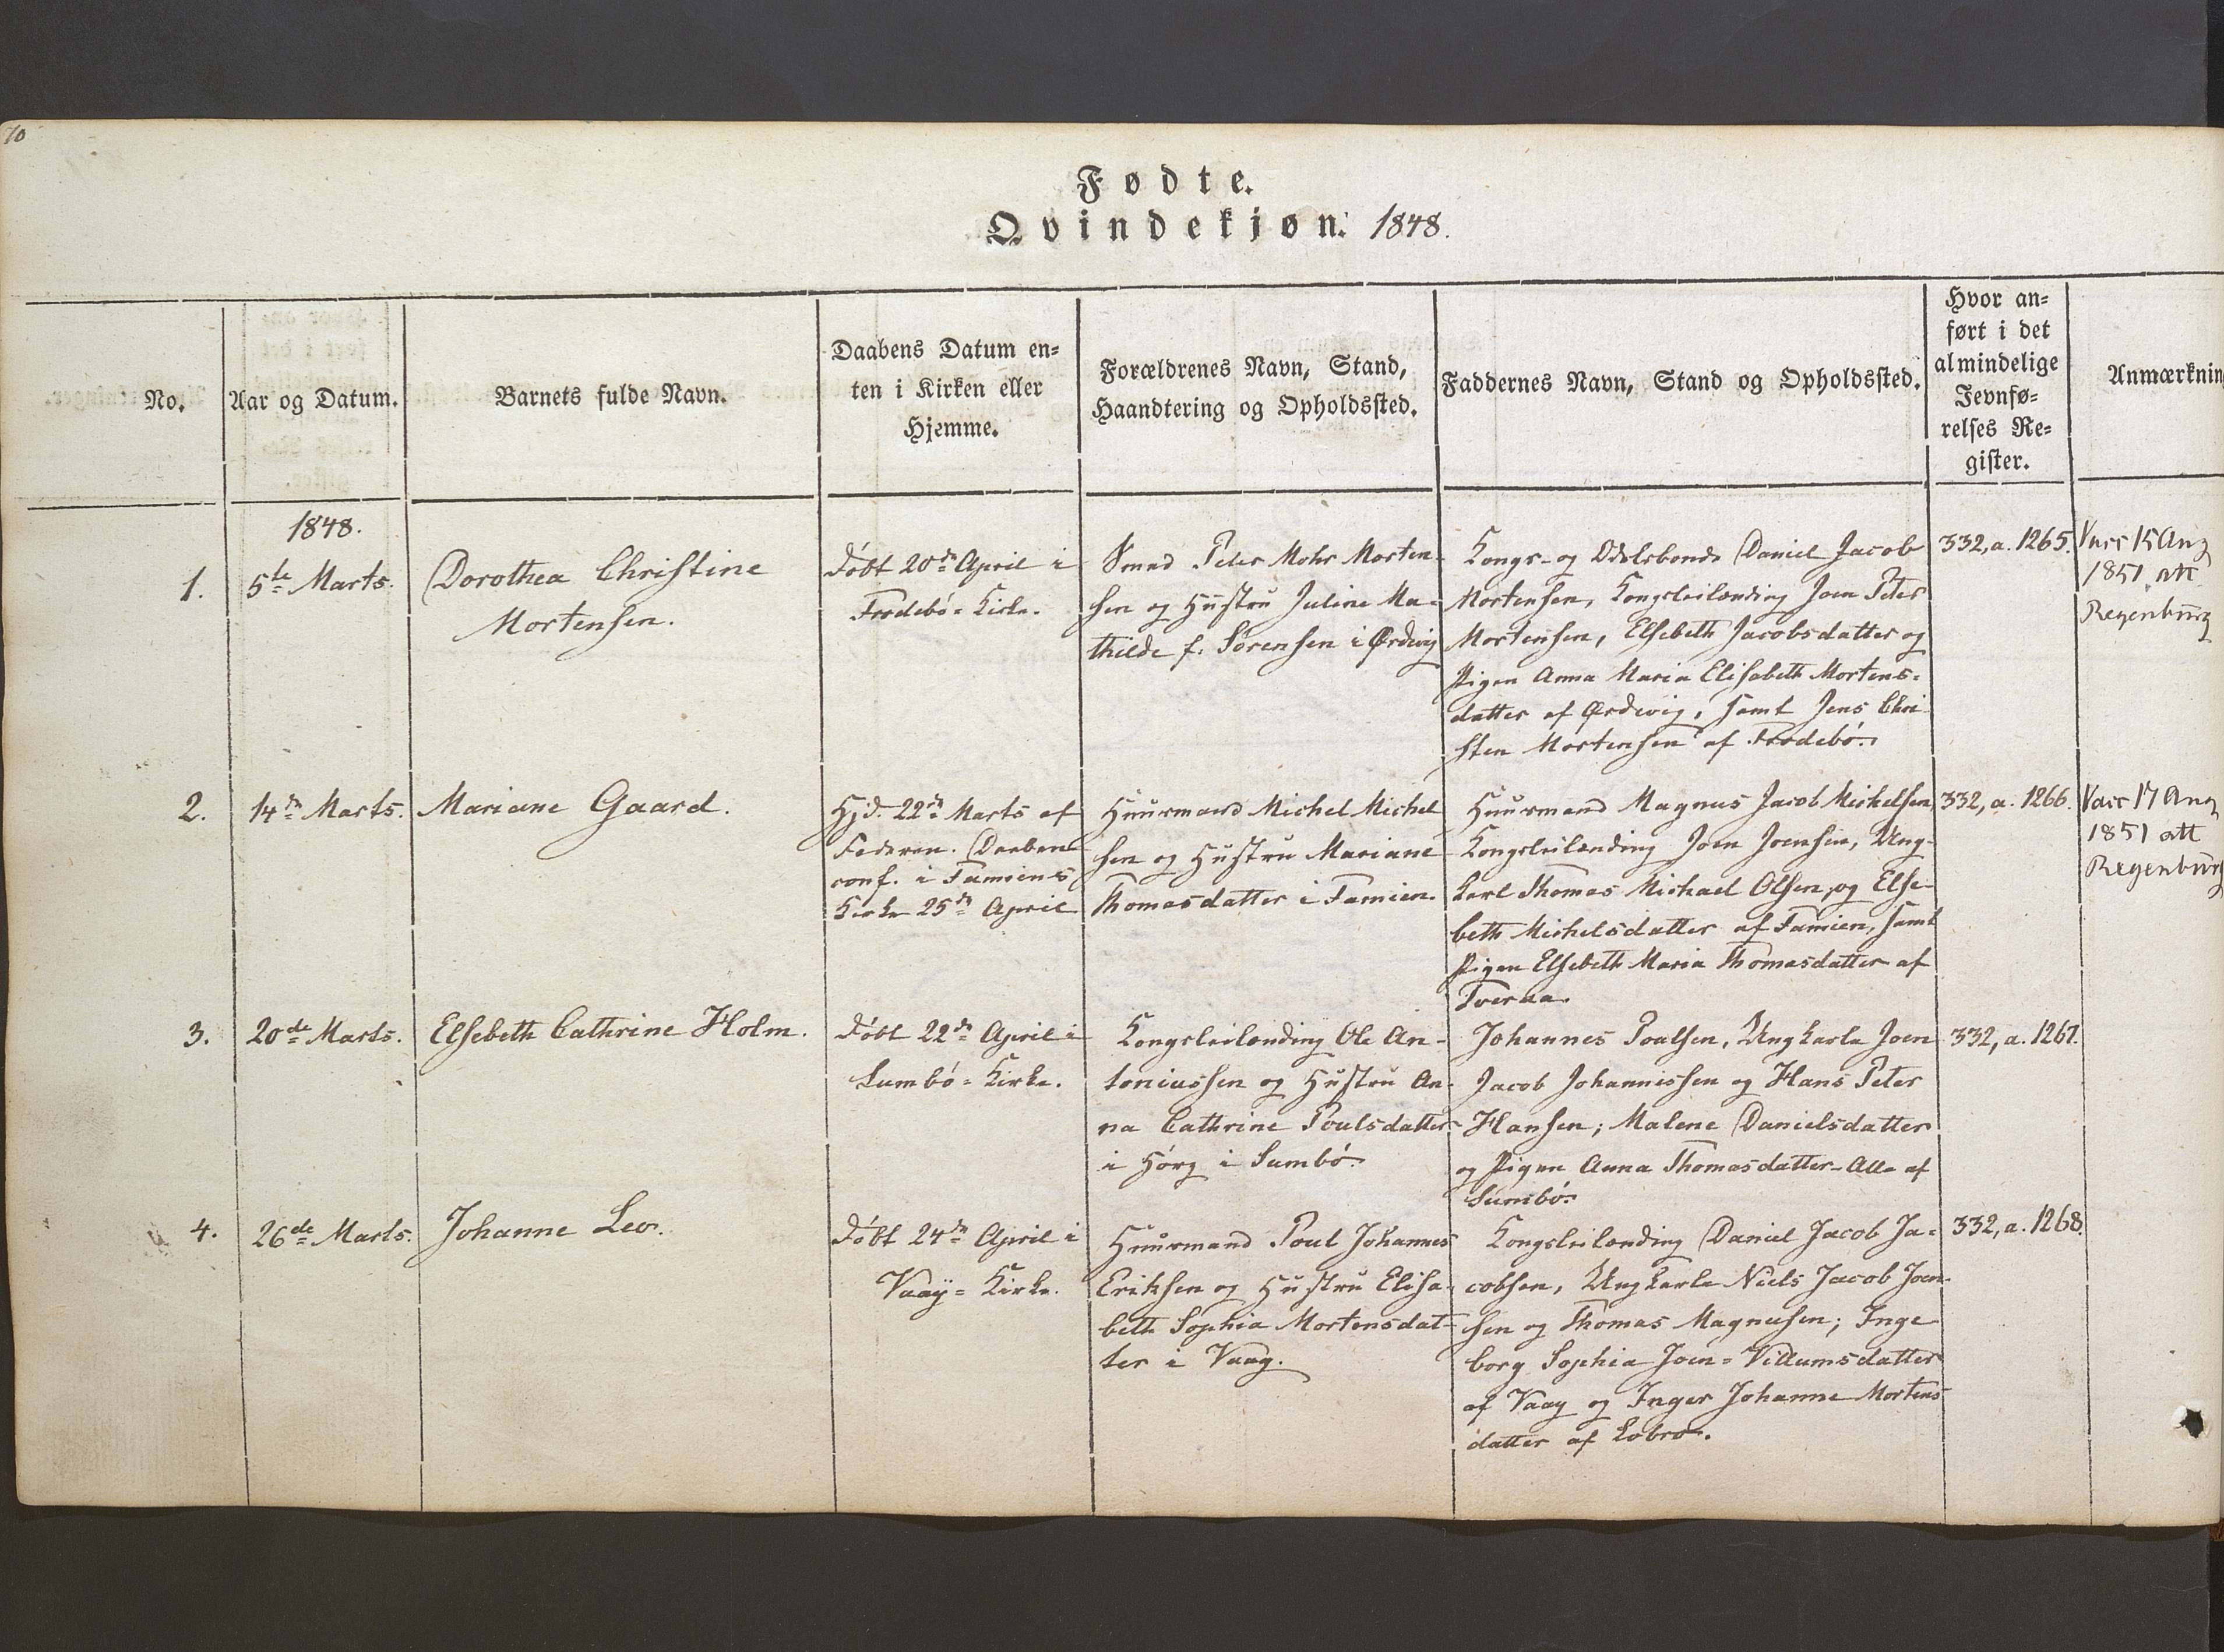 70
Fødte.
Qvindekjøn: 1848.
No.
Aar og Datum.
Barnets fulde Navn.
Daabens Datum en-
ten i Kirken eller
Hjemme.
Forældrenes Navn, Stand,
Haandtering og Opholdssted.
Faddernes Navn, Stand og Opholdssted.
Hvor an-
ført i det
almindelige
Jevnfø-
relses Re-
gister.
Anmærknin
1848.
1.
5te Marts.
Dorothea Christine
Mortensen.
Døbt 20de April i
Frodebø-Kirke.
Smed Peter Mohr Morten-
sen og Hustru Juline Ma-
thilde f. Sørensen i Ørdevig
Kongs- og Odelsbonde Daniel Jacob
Mortensen, Kongsleilænding Joen Peter
Mortensen, Elsebeth Jacobsdatter og
Pigen Anna Maria Elisabeth Mortens-
datter af Ørdevig, samt Jens Chri-
sten Mortensen af Frodebø.
332, a. 1265.
Vacc 15 Aug
1851 att
Regenburg
2.
14de Marts.
Mariane Gaard.
Hjd. 22de Marts af
Faderen. Daaben
conf. i Famiens
Kirke 25de April
Huusmand Michel Michel
sen og Hustru Mariane
Thomasdatter i Famien.
Huusmand Magnus Jacob Michelsen
Kongsleilænding Joen Joensen, Ung-
karl Thomas Michael Olsen, og Else-
beth Michelsdatter af Famien, samt
Pigen Elsebeth Maria Thomasdatter af
Tveraa.
332, a. 1266.
Vacc 17 Aug
1851 att
Regenburg
3.
20de Marts.
Elsebeth Cathrine Holm.
Døbt 22de April i
Sumbø-Kirke.
Kongsleilænding Ole An-
toniussen og Hustru An-
na Cathrine Poulsdatter
i Hørg i Sumbø.
Johannes Poulsen, Ungkarle Joen
Jacob Johannissen og Hans Peter
Hansen; Malene Danielsdatter
og Pigen Anna Thomasdatter - Alle af
Sumbø.
332, a. 1267.
4.
26de Marts.
Johanne Leo.
Døbt 24de April i
Vaag-Kirke.
Huusmand Poul Johannes
Eriksen og Hustru Elisa-
beth Sophia Mortensdat-
ter i Vaag.
Kongsleilænding Daniel Jacob Ja-
cobsen, Ungkarle Niels Jacob Joen-
sen og Thomas Magnusen; Inge
borg Sophia Joen-Villumsdatter
af Vaag og Inger Johanne Mortens
datter af Lobro.
332, a. 1268.